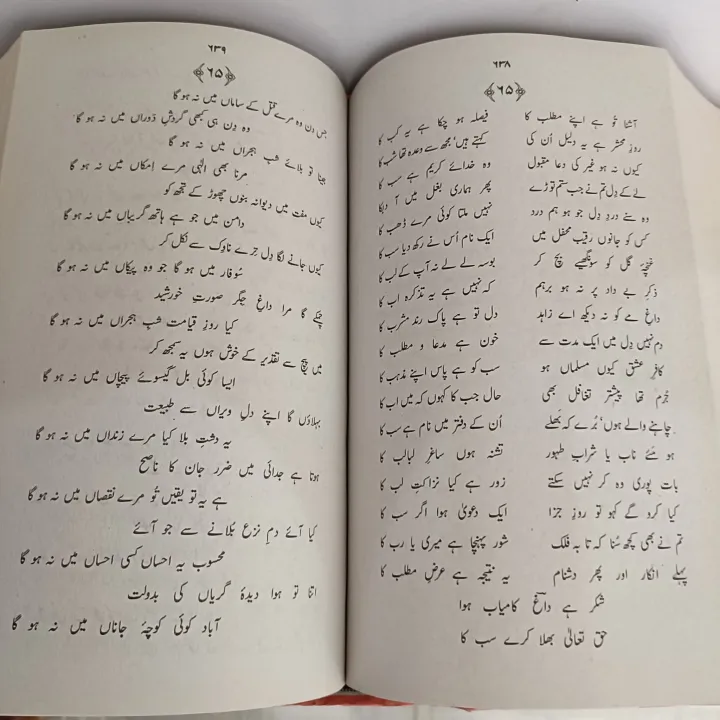 ۶۳۸
۶۵
آشنا تُو ہے اپنے مطلب کا فیصلہ ہو چکا ہے یہ کب کا
روزِ محشر ہے یہ دلیل اُن کی کہتے ہیں، مجھ سے وعدہ تھا شب کا
کیوں نہ ہو غیر کی دعا مقبول وہ خدائے کریم ہے سب کا
لے کے دِل تم نے جب ستم توڑے پھر ہماری بغل میں آ دبکا
وہ سنے دردِ دِل جو ہو ہم درد نہیں ملتا کوئی مرے ڈھب کا
کس کو جانوں رقیب محفل میں ایک نام اُس نے رکھ دیا سب کا
غنچۂ گل کو سونگھیے بچ کر بوسہ لے لے نہ آپ کے لب کا
ذکرِ بے داد پر نہ ہو برہم کہ نہیں ہے یہ تذکرہ اب کا
داغِ مے کو نہ دیکھ اے زاہد دل تو ہے پاک رند مشرب کا
دم نہیں دِل میں ایک مدت سے خون ہے مدعا و مطلب کا
کافرِ عشق کیوں مسلماں ہو سب کو ہے پاس اپنے مذہب کا
جُرم تھا پیشتر تغافل بھی حال جب کا کہوں کہ میں اب کا
چاہنے والے ہوں، بُرے کہ بَھلے اُن کے دفتر میں نام ہے سب کا
ہو مئے ناب یا شرابِ طہور تشنہ ہوں ساغرِ لبالب کا
بات پوری وہ کر نہیں سکتے زور ہے کیا نزاکتِ لب کا
کیا کرو گے کہو تو روزِ جزا ایک دعویٰ ہوا اگر سب کا
تم نے بھی کچھ سُنا کہ تا بہ فلک شور پہنچا ہے میری یا رب کا
پہلے انکار اور پھر دشنام یہ نتیجہ ہے عرضِ مطلب کا
شکر ہے داغؔ کامیاب ہوا
حق تعالیٰ بھلا کرے سب کا
۶۳۹
۶۵
جس دن وہ مرے قتل کے ساماں میں نہ ہو گا
وہ دِن ہی کبھی گردشِ دَوراں میں نہ ہو گا
جیتا تو بلائے شبِ ہجراں میں نہ ہو گا
مرنا بھی الٰہی مرے اِمکاں میں نہ ہو گا
کیوں مفت میں دیوانہ بنوں چھوڑ کے تجھ کو
دامن میں جو ہے ہاتھ گریباں میں نہ ہو گا
کیوں جانے لگا دِل ترے ناوک سے نکل کر
سُوفار میں ہو گا جو وہ پیکاں میں نہ ہو گا
چمکے گا مرا داغِ جگر صورتِ خورشید
کیا روزِ قیامت شبِ ہجراں میں نہ ہو گا
میں پیچ سے تقدیر کے خوش ہوں یہ سمجھ کر
ایسا کوئی بل گیسوئے پیچاں میں نہ ہو گا
بہلاؤں گا اپنے دلِ ویراں سے طبیعت
یہ دشتِ بلا کیا مرے زنداں میں نہ ہو گا
ہوتا ہے جدائی میں ضرر جان کا ناصح
ہے یہ تو یقیں تُو مرے نقصاں میں نہ ہو گا
کیا آئے دمِ نزع بُلانے سے جو آئے
محسوب یہ احساں کسی احساں میں نہ ہو گا
اتنا تو ہوا دیدۂ گریاں کی بدولت
آباد کوئی کوچۂ جاناں میں نہ ہو گا